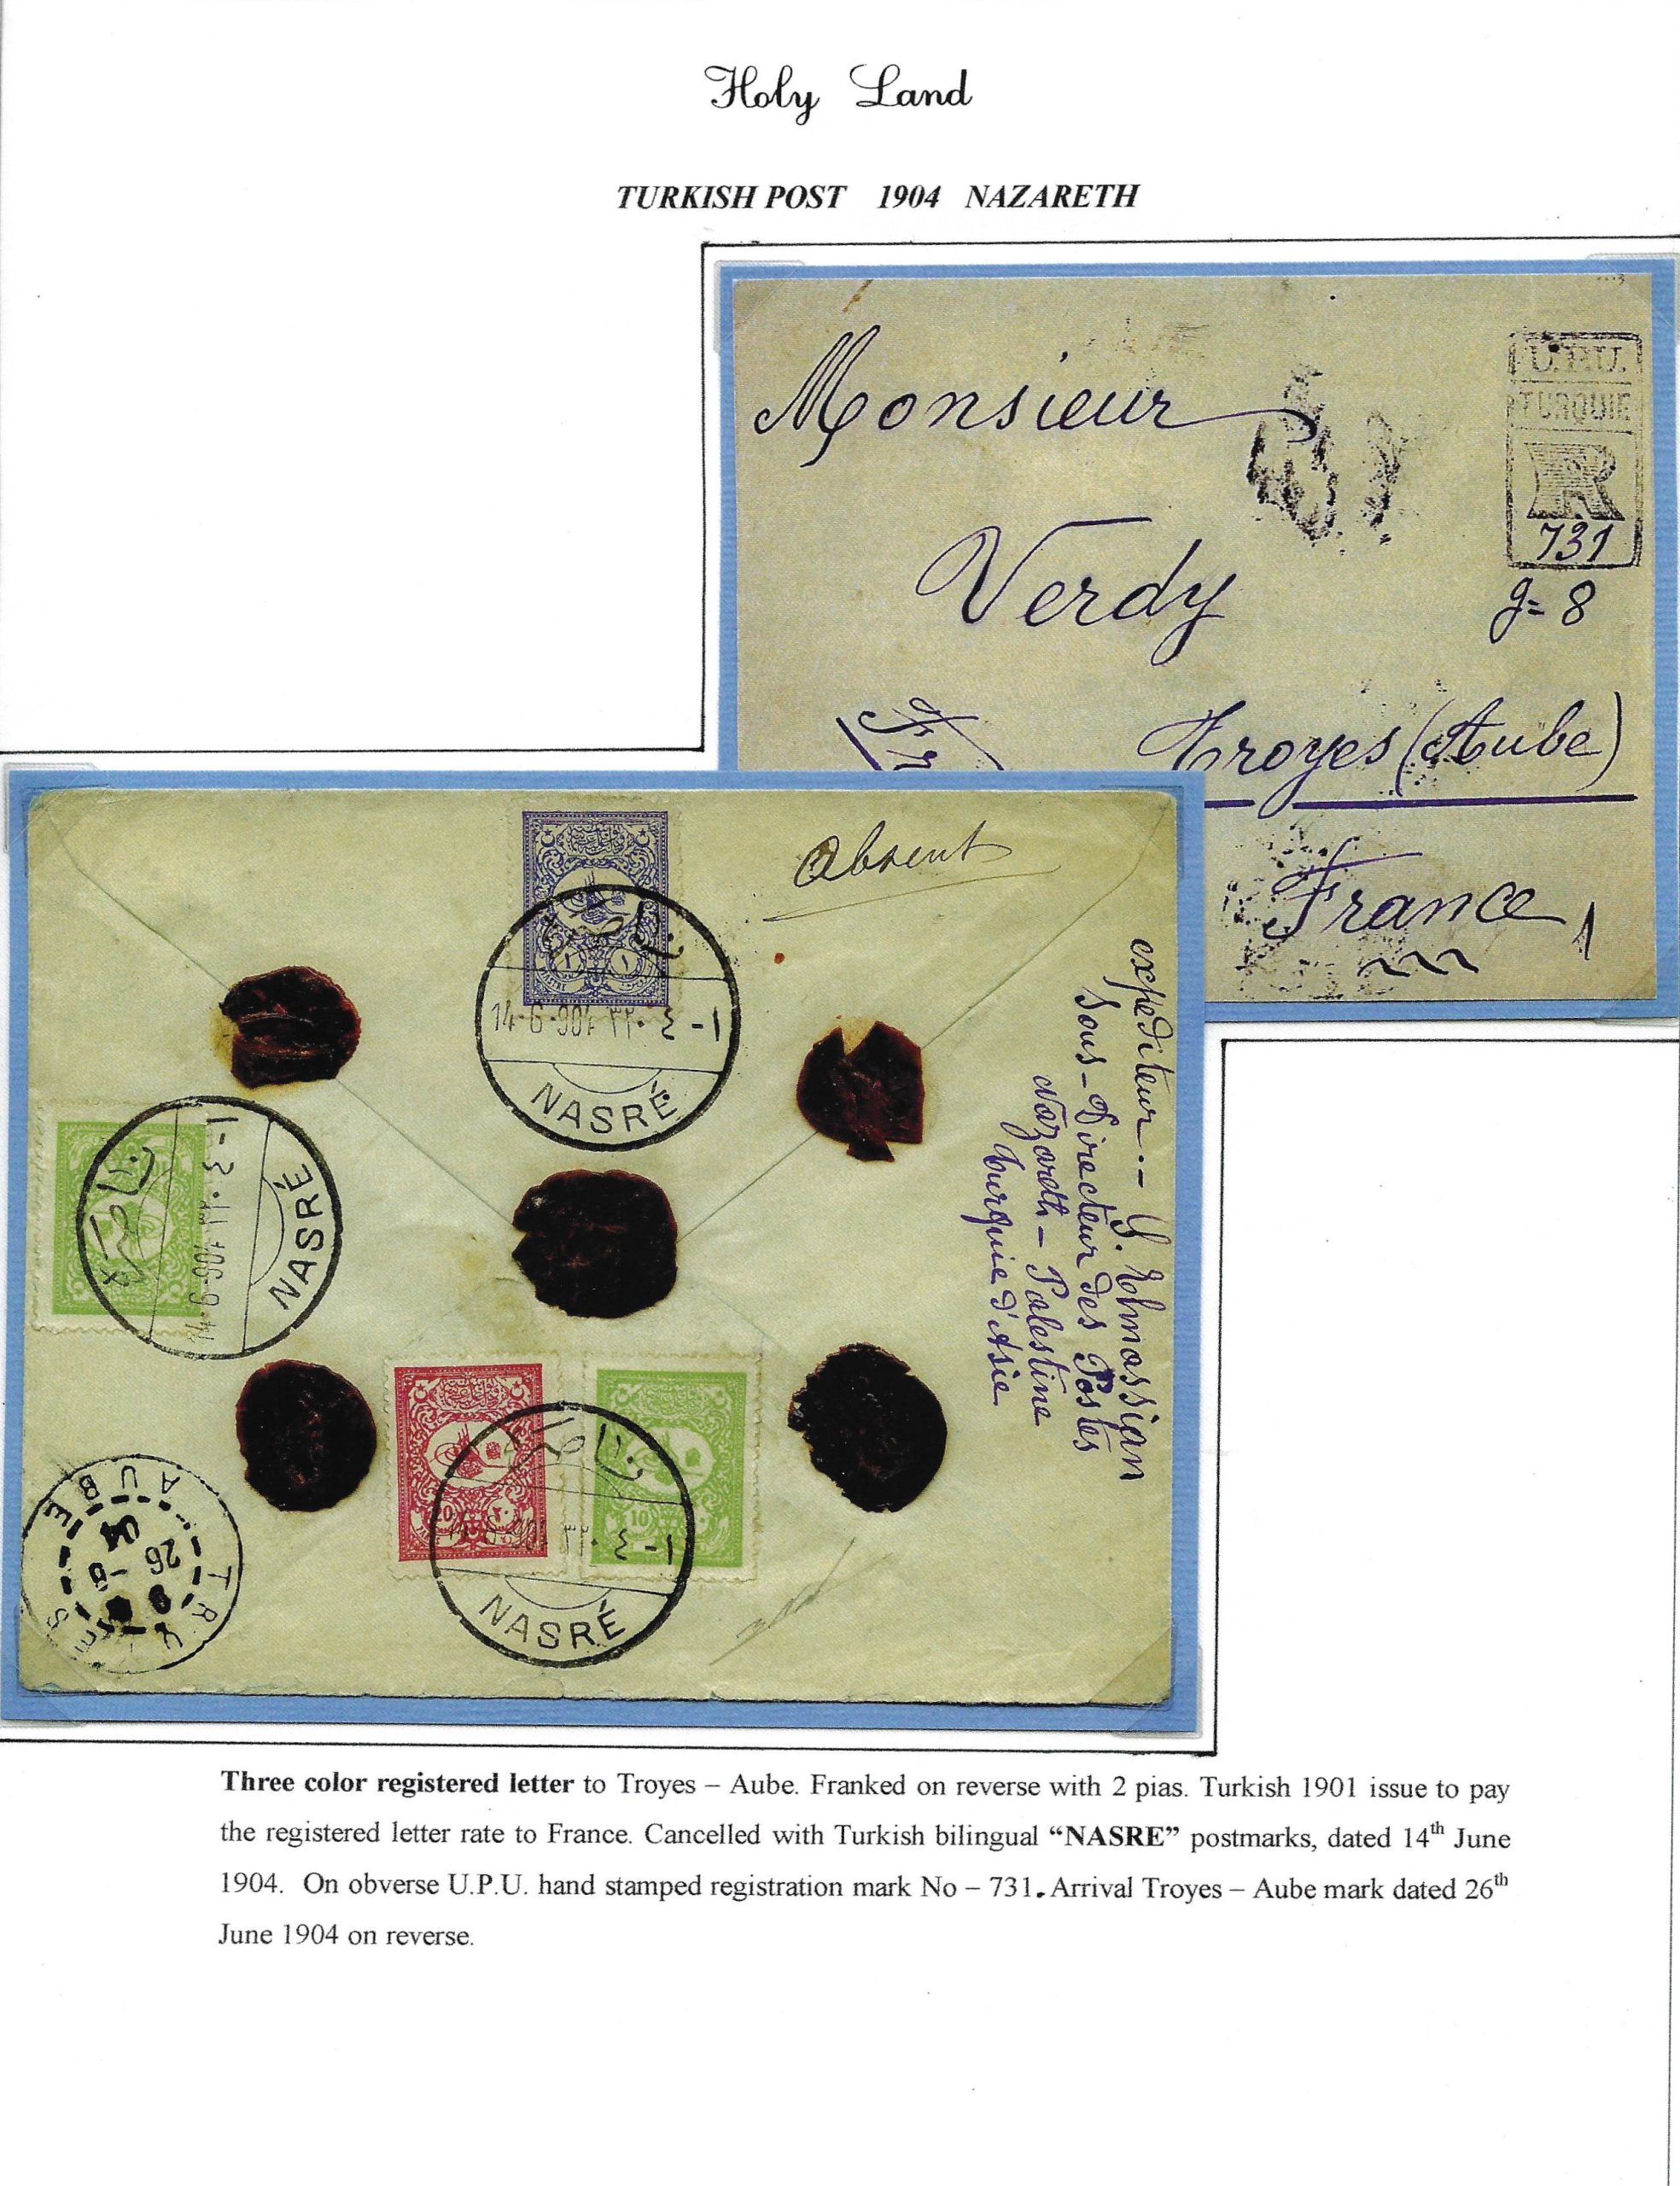 Holy Land
TURKISH POST 1904 NAZARETH
Monsieur
Verdy
Troyes (Aube)
France
U.P.U.
TURQUIE
R
731
g= 8
Absent
expediteur :-
Sous-Directeur des Postes
Nazareth - Palestine
Turquie d'Asie
ناصره
14-6-904 ٣٢٠ ٤-١
NASRÉ
ناصره
14-6-904 ٣٢٠ ٤-١
NASRÉ
20
10
ناصره
٤-١
NASRÉ
TROYES
AUBE
26
04
Three color registered letter to Troyes – Aube. Franked on reverse with 2 pias. Turkish 1901 issue to pay
the registered letter rate to France. Cancelled with Turkish bilingual “NASRE” postmarks, dated 14th June
1904. On obverse U.P.U. hand stamped registration mark No – 731. Arrival Troyes – Aube mark dated 26th
June 1904 on reverse.